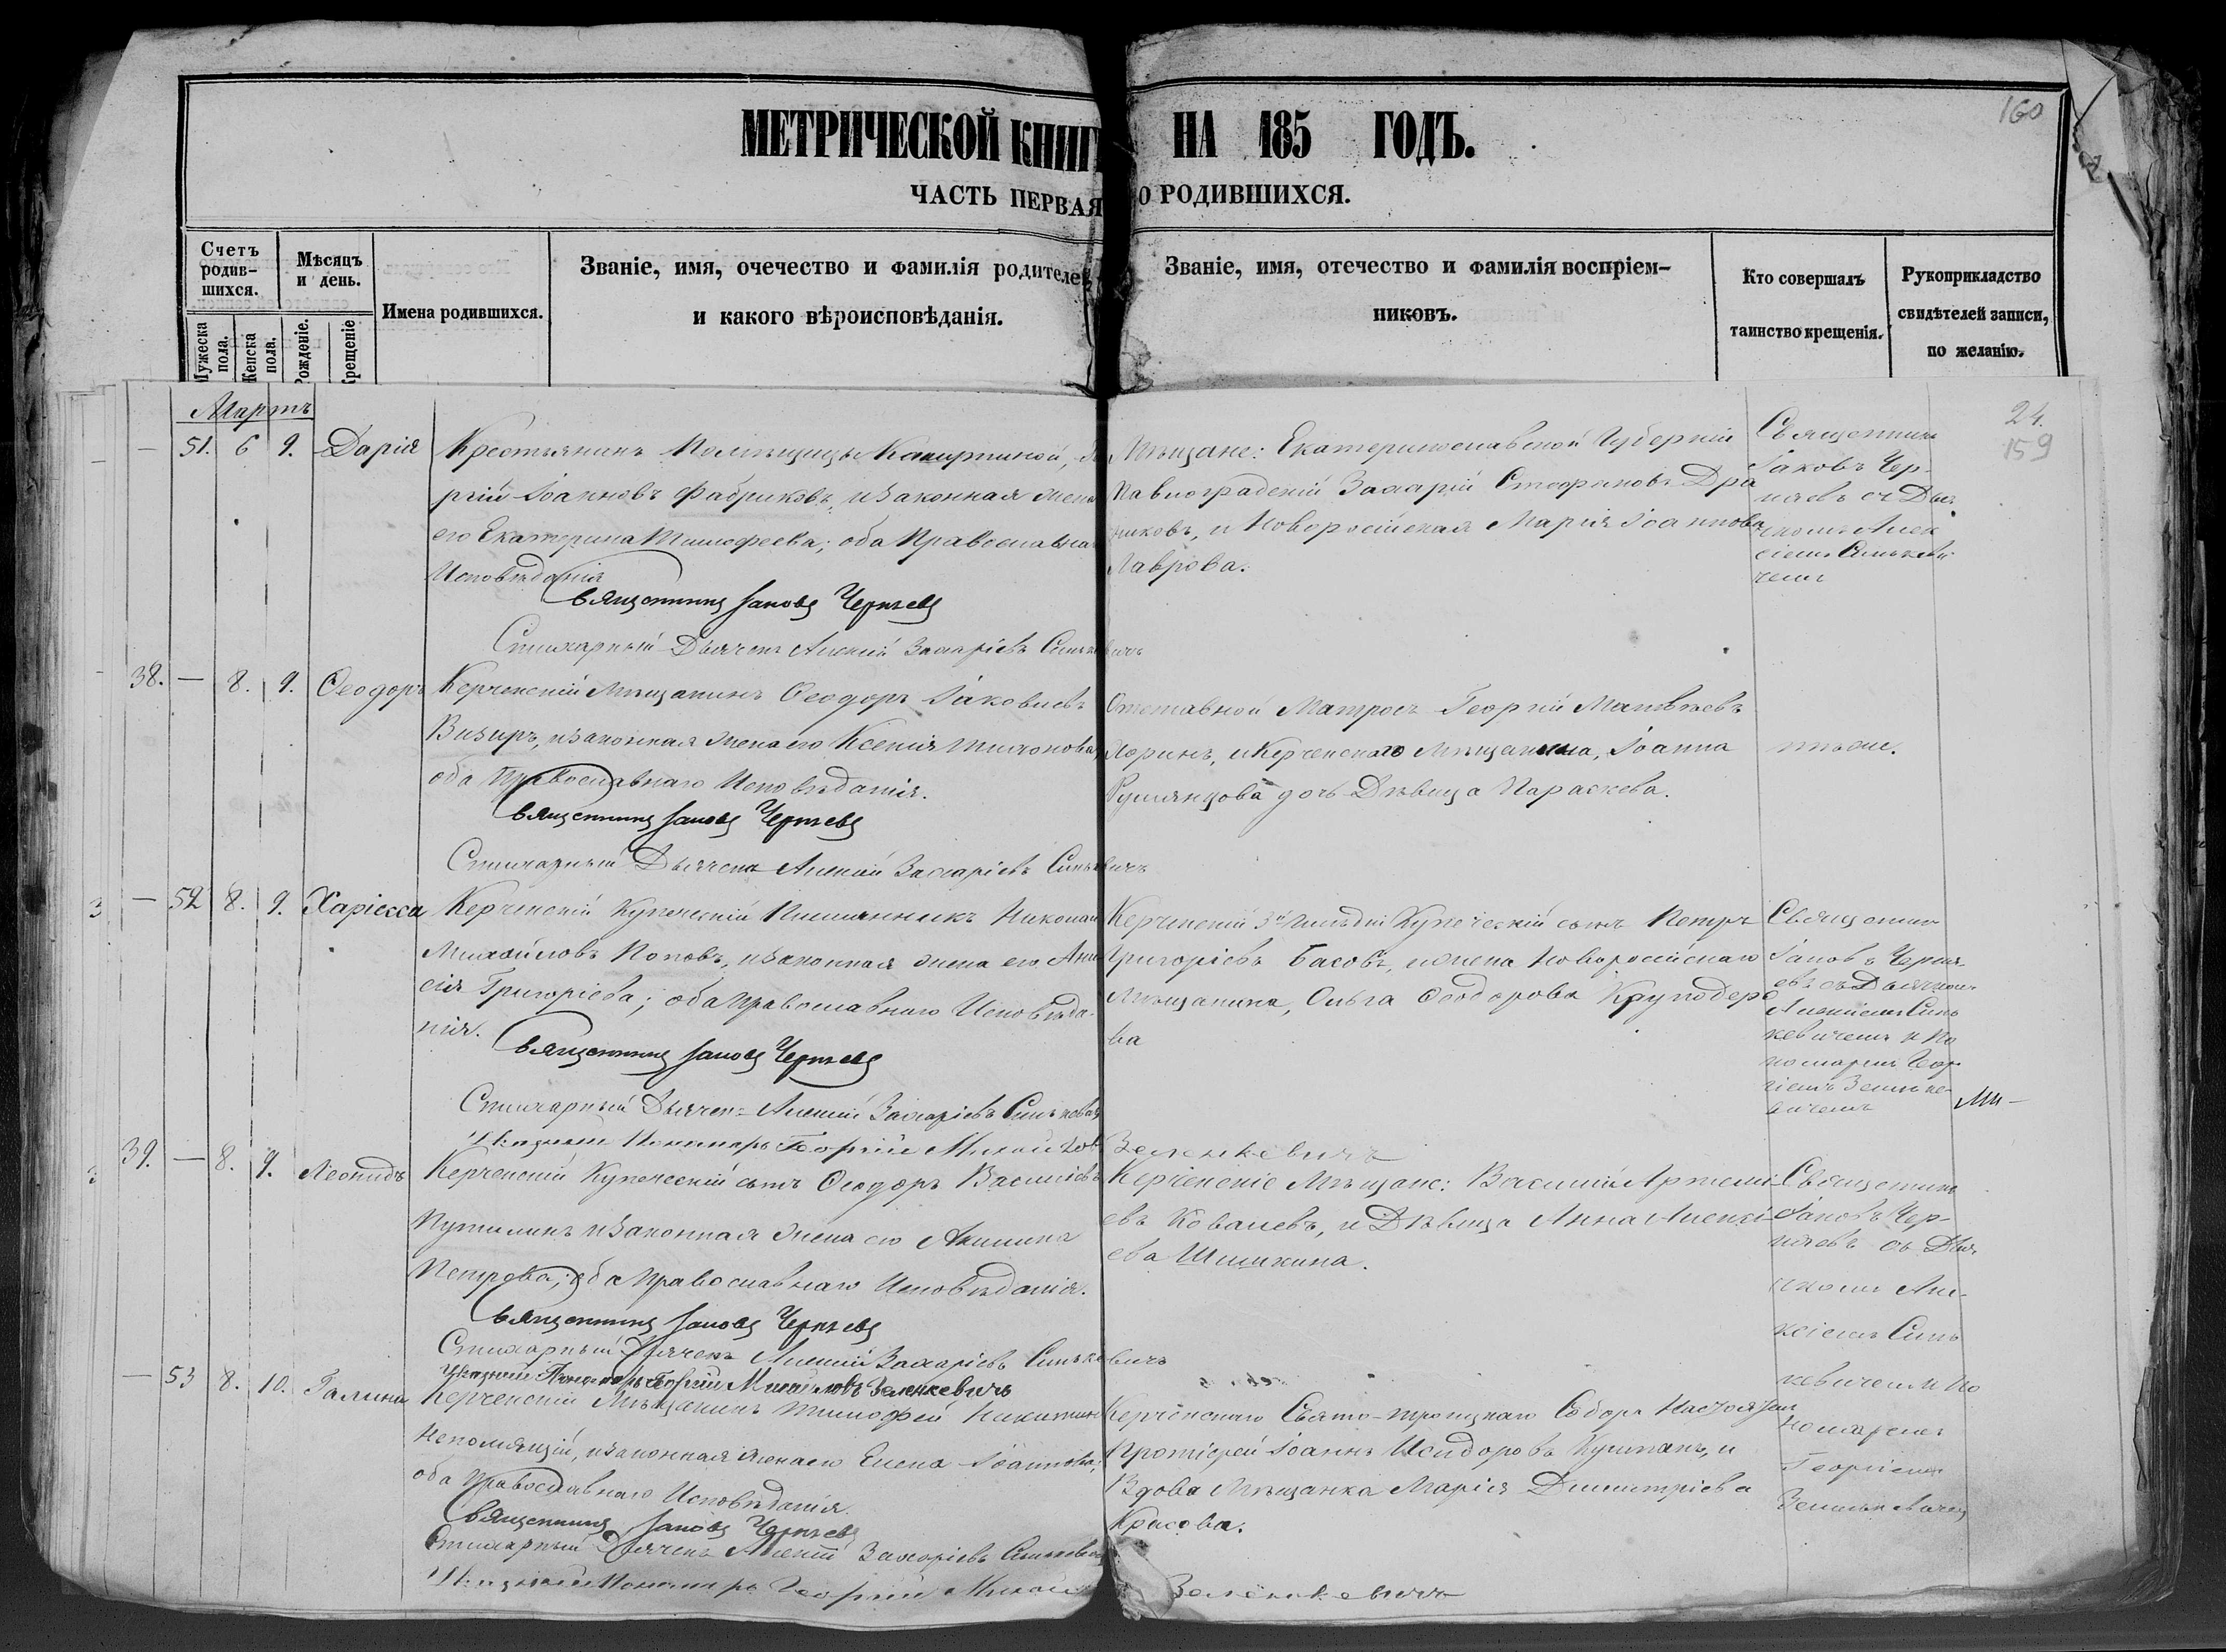 160
МЕТРИЧЕСКОЙ КНИГ НА 185 ГОДЪ.
ЧАСТЬ ПЕРВАЯ О РОДИВШИХСЯ.
Счетъ родив-
шихся.
Мѣсяцъ
и день.
Мужеска пола.
Женска пола.
Рожденіе.
Крещеніе
Имена родившихся.
Званіе, имя, очечество и фамилія родителей
и какого вѣроисповѣданія.
Званіе, имя, отечество и фамилія воспріем-
никовъ.
Кто совершалъ
таинство крещенія.
Рукоприкладство
свидѣтелей записи,
по желанію.
24.
159
Мартъ
— 51. 6 9. Дарія
Крестьянинъ Помѣщицы
ргій Іоанновъ Фабриковъ, и законная жена
его Екатерина Тимофеева; оба Православнаго
Исповѣданія
Священникъ Іаковъ Черняевъ
Стихарный Дьячекъ Алексій Захаріевъ Синькевичъ
Мѣщане: Екатеринославской Губерніи
Павлоградскій Захарій Стефановъ Дра
никовъ, и Новоросійская Марія Іоаннова
Лаврова.
Священникъ
Іаковъ Чер-
няевъ съ Дья
чкомъ Алек
сіемъ Синькеви
чемъ
38. — 8. 9. Ѳеодоръ
Керченскій Мѣщанинъ Ѳеодоръ Іаковлевъ
Визиръ, и законная жена его Ксенія Тихонова,
оба Православнаго Исповѣданія.
Священникъ Іаковъ Черняевъ
Стихарный Дьячекъ Алексій Захаріевъ Синькевичъ
Отставной Матросъ Георгій Матвѣевъ
Хоринъ, и Керченскаго Мѣщанина, Іоанна
Румянцова дочь Дѣвица Параскева.
тѣже.
— 52 8. 9. Харіесса
Керченскій Купеческій Племянникъ Николай
Михайловъ Поповъ, и законная жена его Ани
сія Григоріева; оба Православнаго Исповѣда-
нія.
Священникъ Іаковъ Черняевъ
Стихарный Дьячекъ Алексій Захаріевъ Синькевичъ
Указный Пономарь Георгій Михайловъ Зеленкевичъ
Керченскій 3й Гильдіи Купеческій сынъ Петръ
Григоріевъ Басовъ, и жена Новоросійскаго
Мѣщанина, Ольга Ѳеодорова Круподеро
ва
Священник
Іаковъ Черня
евъ съ Дьячкомъ
Алексіемъ Синь
кевичемъ и По
номаремъ Геор
гіемъ Зеленке-
вичемъ
39. — 8. 9. Леонидъ
Керченскій Купеческій сынъ Ѳеодоръ Василіевъ
Путилинъ и законная жена его Акилина
Петрова; оба Православнаго Исповѣданія.
Священникъ Іаковъ Черняевъ
Стихарный Дьячекъ Алексій Захаріевъ Синькевичъ
Указный Пономарь Георгій Михайловъ Зеленкевичъ
Керченскіе Мѣщане: Василій Артеми-
евъ Ковалевъ, и Дѣвица Анна Алексі-
ева Шишкина.
Священник
Іаковъ Чер-
няевъ съ Дья
чкомъ Але-
ксіемъ Синь
кевичемъ и По
номаремъ
Георгіемъ
Зеленкевичемъ
— 53 8. 10. Галина
Керченскій Мѣщанинъ Тимофей Никитинъ
Непомнящій, и законная жена его Елена Іоаннова;
оба Православнаго Исповѣданія.
Священникъ Іаковъ Черняевъ
Стихарный Дьячекъ Алексій Захаріевъ Синькевичъ
Указный Пономарь Георгій Михай Зеленкевичъ
Керченскаго Свято-Троицкаго Собора Настоятель
Протіерей Іоаннъ Исидоровъ и
Вдова Мѣщанка Марія Димитріева
Красова.